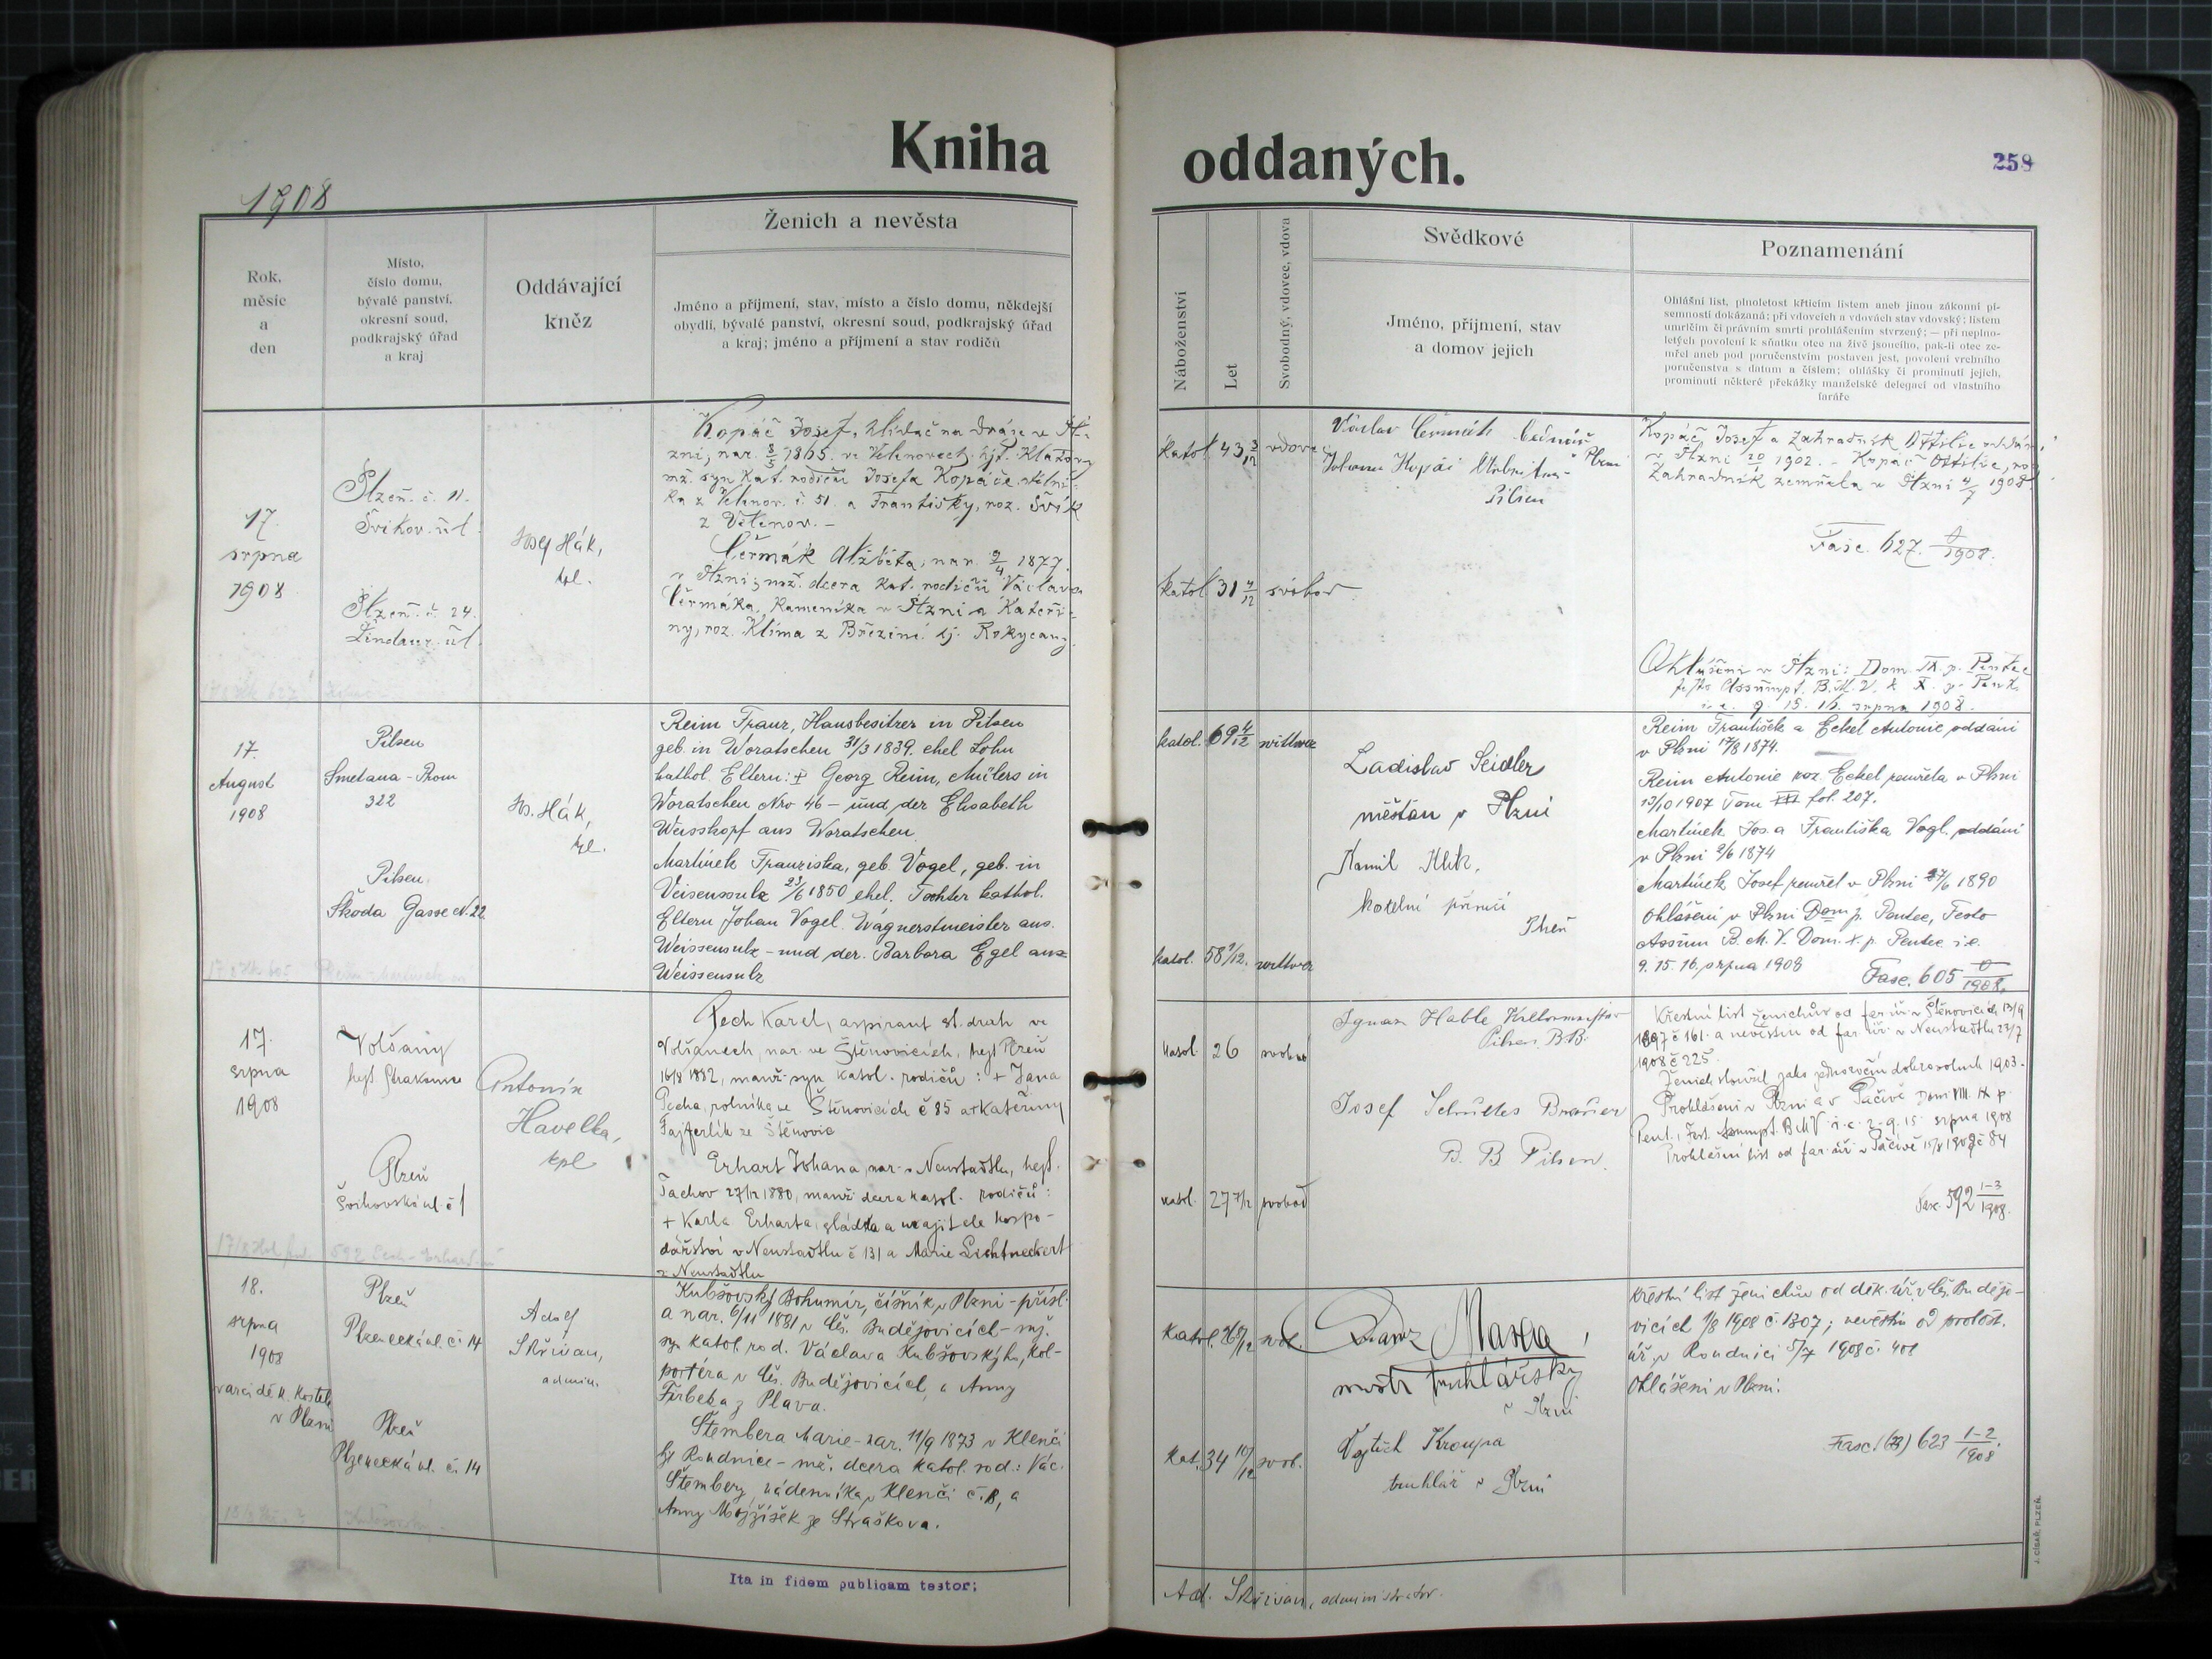 Kniha oddaných.
258
1908
Rok,
měsíc
a
den
Místo,
číslo domu,
bývalé panství,
okresní soud,
podkrajský úřad
a kraj
Oddávající
kněz
Ženich a nevěsta
Jméno a příjmení, stav, místo a číslo domu, někdejší
obydlí, bývalé panství, okresní soud, podkrajský úřad
a kraj; jméno a příjmení a stav rodičů
Náboženství
Let
Svobodný, vdovec, vdova
Svědkové
Jméno, příjmení, stav
a domov jejich
Poznamenání
Ohlášní list, plnoletost křticím listem aneb jinou zákonní pí-
semností dokázaná; při vdovcích a vdovách stav vdovský; listem
umrlčím či právním smrti prohlášením stvrzený; — při neplno-
letých povolení k sňatku otce na živě jsoucího, pak-li otec ze-
mřel aneb pod poručenstvím postaven jest, povolení vrchního
poručenstva s datum a číslem; ohlášky či prominutí jejich,
prominutí některé překážky manželské delegací od vlastního
faráře
17.
srpna
1908
Plzeň. č. 11.
Švikov. ul.
Plzeň. č. 24.
Lindaur. ul.
Josef Hák,
kpl.
Kopáč Josef, hlídač na dráze v Pl-
zni, nar. 3/5 1865. ve Vělenovech. hjt. Klatovy
mž. syn kat. rodičů Josefa Kopáče
ka z Vělenov. č. 51. a Františky, roz. Švík
z Vělenov. –
Čermák Alžběta, nar. 9/4 1877.
v Plzni; mož. dcera kat. rodičů Václava
Čermáka, kameníka v Plzni a Kateři-
ny, roz. Klíma z Březiny hj. Rokycany.
katol. 43 3/12 vdovec
katol. 31 4/12 svobod
Václav Čermák
Plzni
Johann Kopáč
Pilsen
Kopáč Josef a Zahradník Ottilie oddáni
v Plzni 20/10 1902. – Kopáč Ottilie, roz.
Zahradník zemřela v Plzni 4/7 1908.
Fasc. 627. 0/1908.
Ohlášeni v Plzni: Dom. IX. p. Pentec
festo Assumpt. B. M. V. & X. p. Pent.
i. e. 9. 15. 16. srpna 1908.
17.
August
1908
Pilsen
Smetana - Prom
322
Pilsen
Škoda Gasse N. 22
Jos. Hák,
kpl.
Reim Franz, Hausbesitzer in Pilsen
geb. in Woratschen 31/3 1839. ehel Sohn
kathol. Eltern: † Georg Reim, Müllers in
Woratschen Nro 46 – und der Elisabeth
Weisskopf aus Woratschen
Martínek Franziska, geb. Vogel, geb. in
Veisenssulz 23/6 1850 ehel. Tochter kathol.
Eltern Johan Vogel. Wagnerstmeister aus.
Weissensulz – und der. Barbora Egel aus
Weissensulz
katol. 69 4/12 wittwer
katol. 58 1/12. wittwer
Ladislav Seidler
měšťan v Plzni
Kamil Klik,
Plzeň
Reim František a Eckel Antonie oddáni
v Plzni 17/8 1874.
Reim Antonie roz. Eckel zemřela v Plzni
13/10 1907 Tom III fol. 207.
Martínek Jos. a Františka Vogl. oddáni
v Plzni 9/6 1874
Martínek Josef zemřel v Plzni 27/6 1890
Ohlášeni v Plzni Dom p. Pentec, Festo
Assum B. M. V. Dom. X. p. Pentec i.e.
9. 15. 16. srpna 1908
Fasc. 605 0/1908.
17.
srpna
1908
Volšany
hejt Strakonice
Plzeň
Švihovská ul. č 1
Antonín
Havelka,
kpl
Pech Karel, aspirant st. drah ve
Volšanech, nar. ve Štěnovicích, hejt Plzeň
16/8 1882, manž. syn katol. rodičů: + Jana
Pecha, rolníka ve Štěnovicích č 85 a + Kateřiny
Fajferlík ze Štěnovic
Erhart Johana, nar. v Neustadtlu, hejt.
Tachov 27/12 1880, manž. dcera katol. rodičů:
+ Karla Erharta, sládka a majitele hospo-
dářství v Neustadtlu č 131 a Marie Lichtneckert
z Neustadtlu
katol. 26 svobod
katol. 27 7/12 svobod
Ignaz Hable Kellermeister
Pilsen B.B.
Josef Schultes Brauer
B. B Pilsen.
Křestní list ženichův od far. úř. v Štěnovicích 13/9
1897 č 161. a nevěstin od far. úř. v Neustadtlu 23/7
1908 č 225.
Ženich sloužil jako jednoroční dobrovolník 1903.
Prohlášeni v Plzni a v Pačivě Dom VIII. IX p.
Pent., Fest. Assumpt. B. M V i. e. 2. 9. 15 srpna 1908
Prohlášní list od far. úř. v Pačivě 15/8 1908 č 84
Fasc. 592 1-3/1908.
18.
srpna
1908
v arciděk. kostele
v Plzni
Plzeň
Plzenecká ul. č. 14
Plzeň
Plzenecká ul. č. 14
Adolf
Skřivan,
admin.
Kubšovský Bohumír, číšník v Plzni – přísl.
a nar. 6/11 1881 v Čes. Budějovicích – mž.
syn katol. rod. Václava Kubšovského, kol-
portéra v Čes. Budějovicích, a Anny
Firbeka z Plava.
Štembera Marie – nar. 11/9 1873 v Klenči
hj Roudnice – mž. dcera katol. rod.: Vác.
Štembery, nádenníka v Klenči č. 8, a
Anny Mojžíšek ze Straškova.
Katol. 26 9/12 svob.
Kat. 34 10/12 svob.
Franz Masta,
mistr truhlářský
v Plzni
Vojtěch Kroupa
truhlář v Plzni
Křestní list ženichův od děk. úř. v Čes. Buděj-
vicích 1/8 1908 č. 1307; nevěstin od probošt.
úř. v Roudnici 5/7 1908 č. 408
Ohlášeni v Plzni.
Fasc. 623 1-2/1908.
Ita in fidem publicam testor:
Ad. Skřivan, administrator.
J. CÍSAŘ, PLZEŇ.